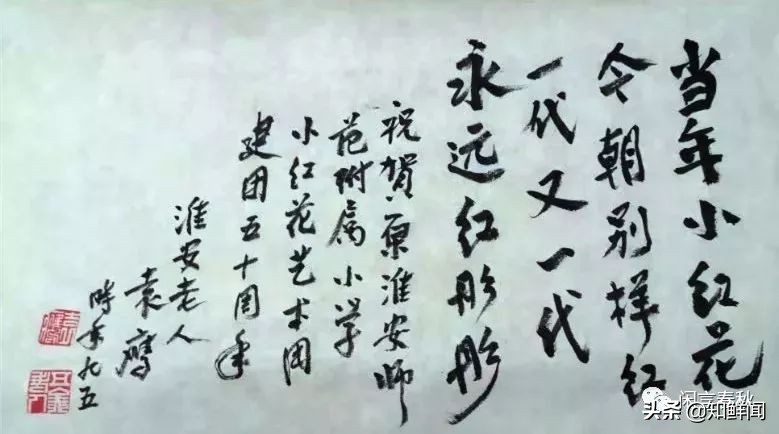 当年小红花
今朝别样红
一代又一代
永远红彤彤
祝贺原淮安师
范附属小学
小红花艺术团
建团五十周年
淮安老人
袁鹰
时年九五
闲言春秋
头条 @知鲜闻